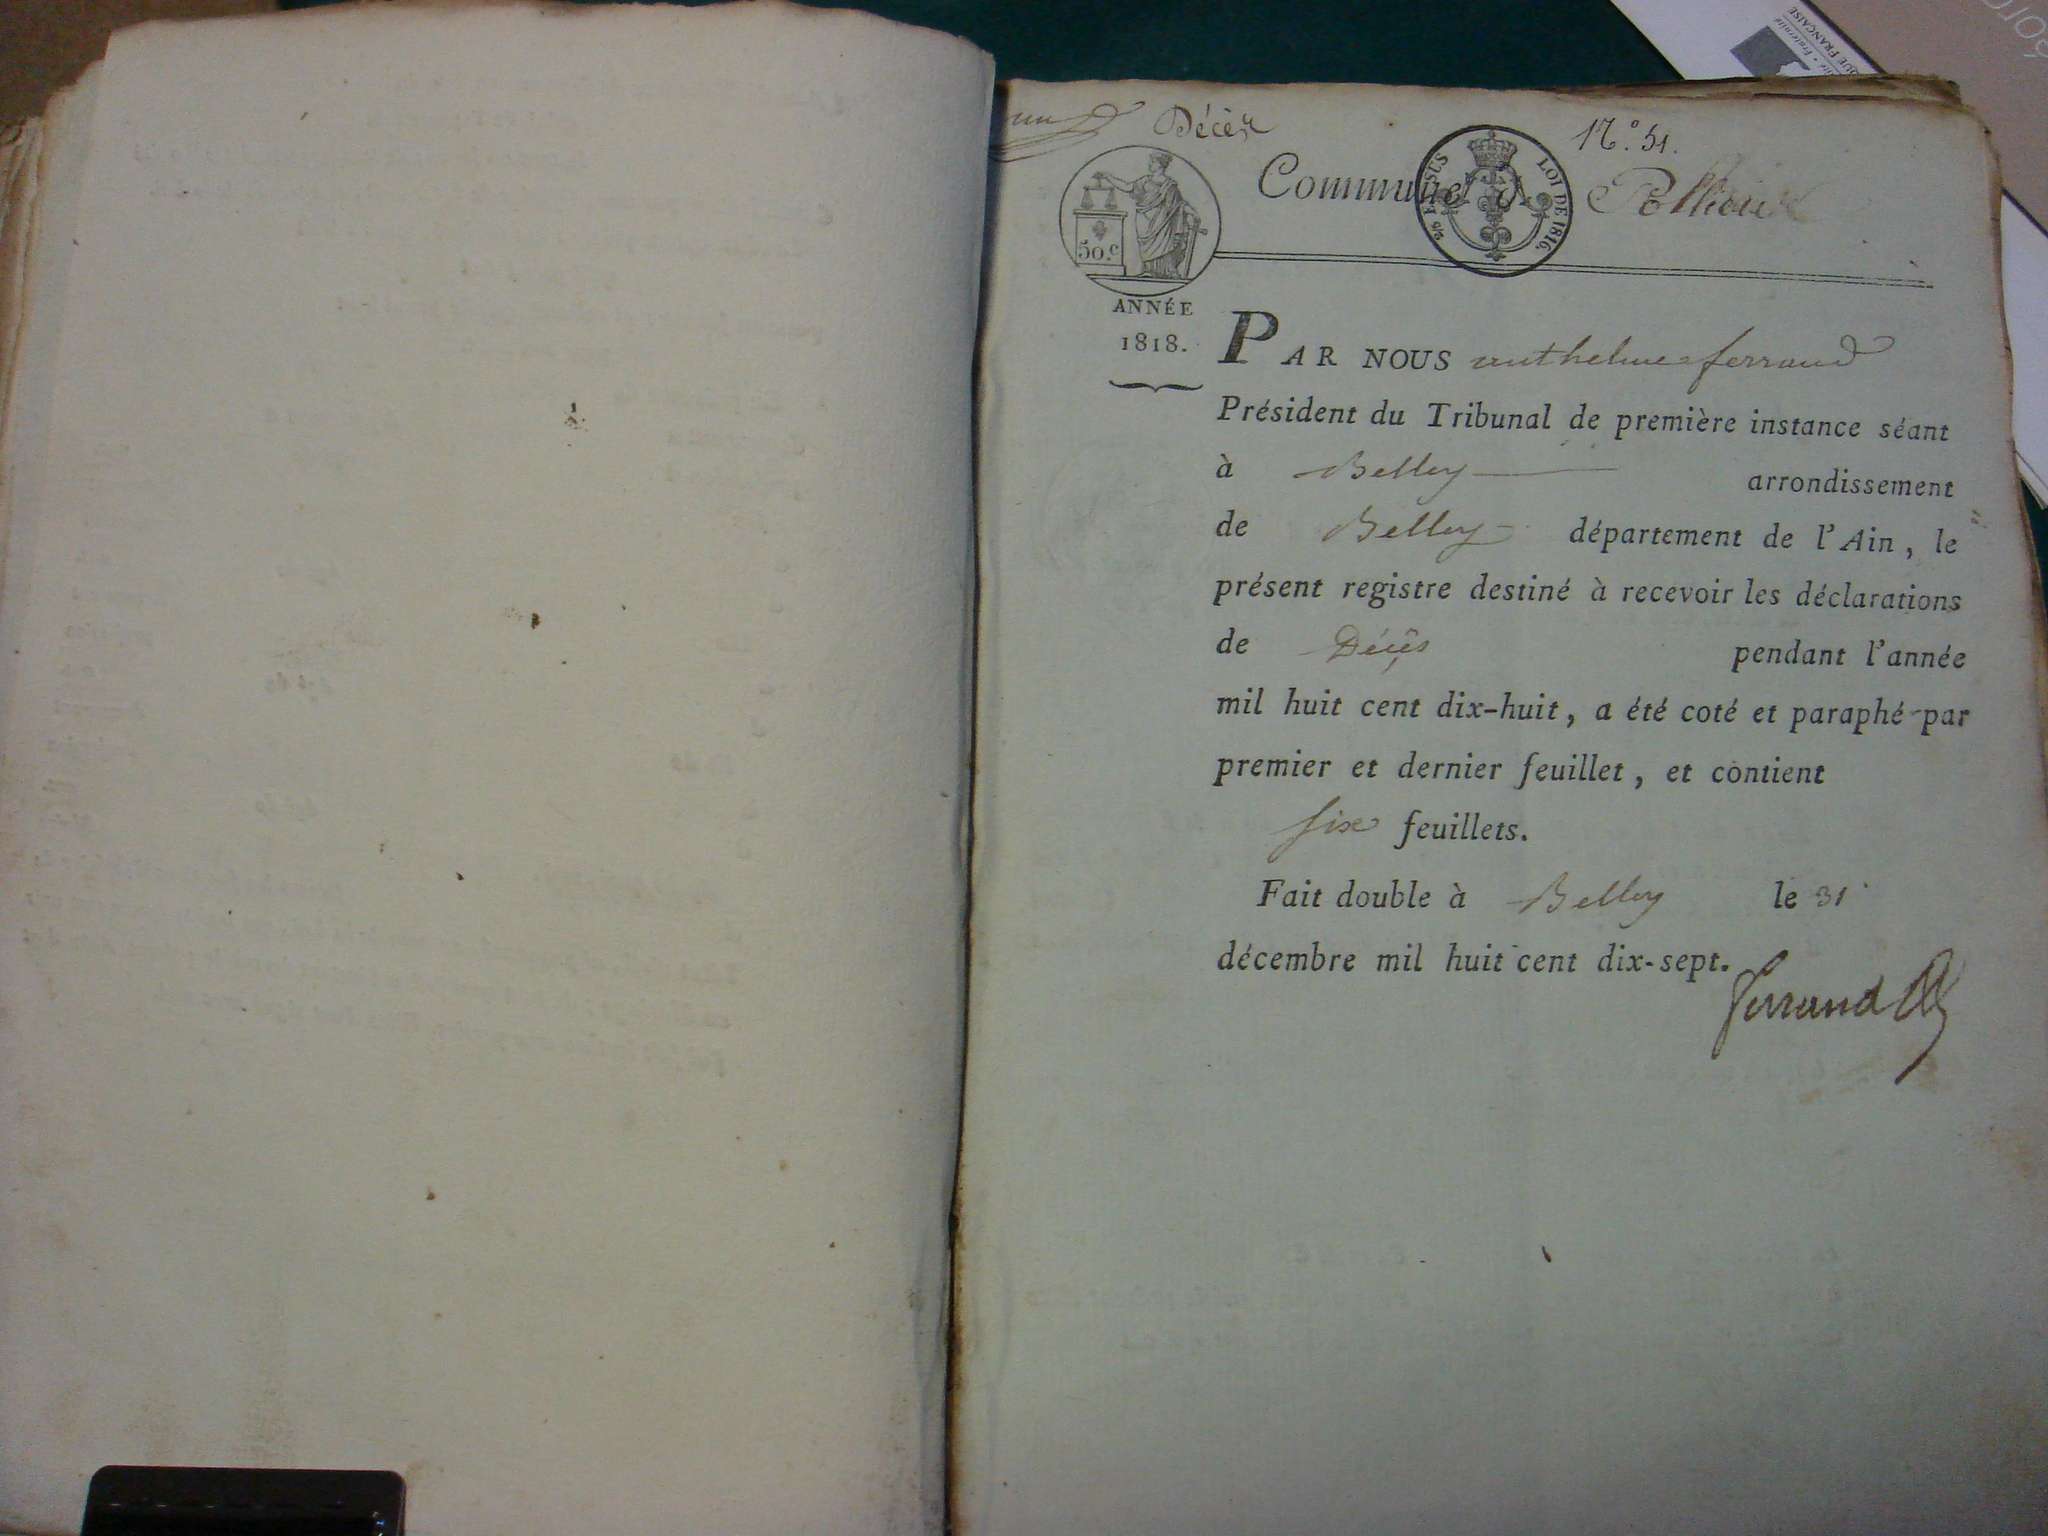 Décès
N.° 51.
Commune d
50.c
EN SUS
LOI DE 1816.
ANNÉE
1818.
PAR NOUS anthelme ferrand
Président du Tribunal de première instance séant
à Belley arrondissement
de Belley département de l'Ain, le
présent registre destiné à recevoir les déclarations
de Décès pendant l'année
mil huit cent dix-huit, a été coté et paraphé par
premier et dernier feuillet, et contient
six feuillets.
Fait double à Belley le 31
décembre mil huit cent dix-sept.
ferrand
QUE FRANÇAISE
Fraternité